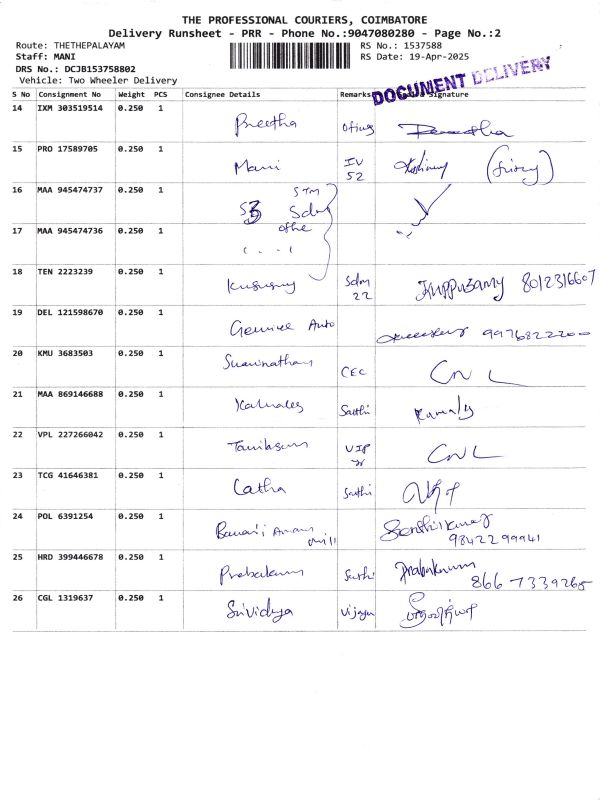 THE PROFESSIONAL COURIERS, COIMBATORE
Delivery Runsheet - PRR - Phone No.:9047080280 - Page No.:2
Route: THETHEPALAYAM
Staff: MANI
DRS No.: DCJB153758802
Vehicle: Two Wheeler Delivery
RS No.: 1537588
RS Date: 19-Apr-2025
DOCUMENT DELIVERY
S No Consignment No Weight PCS Consignee Details Remarks Signature
14 IXM 303519514 0.250 1 Preetha
15 PRO 17589705 0.250 1 Mani IV 52
16 MAA 945474737 0.250 1 STM
17 MAA 945474736 0.250 1
18 TEN 2223239 0.250 1 Sdm 22 Kuppusamy 8012316607
19 DEL 121598670 0.250 1 Auto 9976822200
20 KMU 3683503 0.250 1 Swaminathan CEC
21 MAA 869146688 0.250 1 Sakthi
22 VPL 227266042 0.250 1 VIP
23 TCG 41646381 0.250 1 Latha Sakthi
24 POL 6391254 0.250 1 Senthilkumar 9842299941
25 HRD 399446678 0.250 1 Prabakaran Sakthi 866 7339265
26 CGL 1319637 0.250 1 Srividya Vijaya